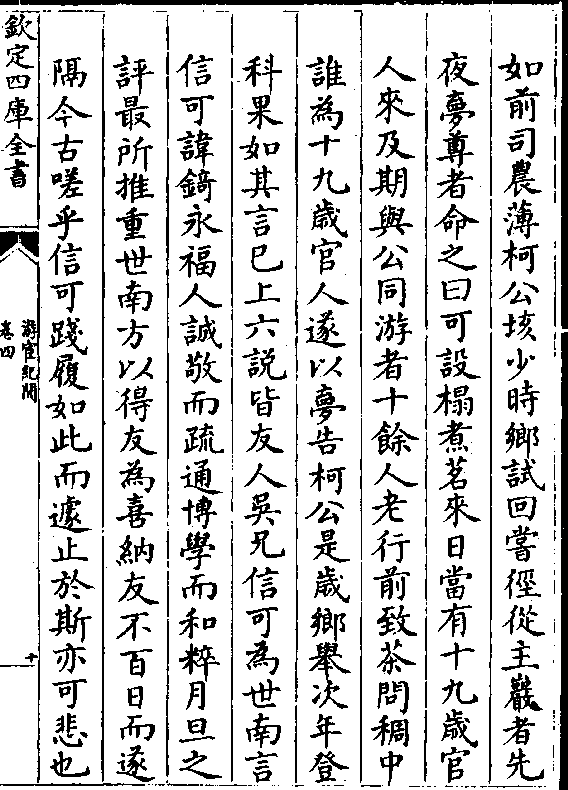 如前司農薄柯公垓少時鄉試回嘗徑從主巖者先
夜夢尊者命之曰可設榻煮茗來日當有十九歲官
人來及期與公同游者十餘人老行前致茶問稠中
誰為十九歲官人遂以夢告柯公是歲鄉舉次年登
科果如其言已上六説皆友人吳兄信可為世南言
信可諱鑄永福人誠敬而疏通博學而和粹月旦之
評最所推重世南方以得友為喜納友不百日而遂
隔今古嗟乎信可踐履如此而遽止於斯亦可悲也
欽定四庫全書
游宦紀聞
卷四
十